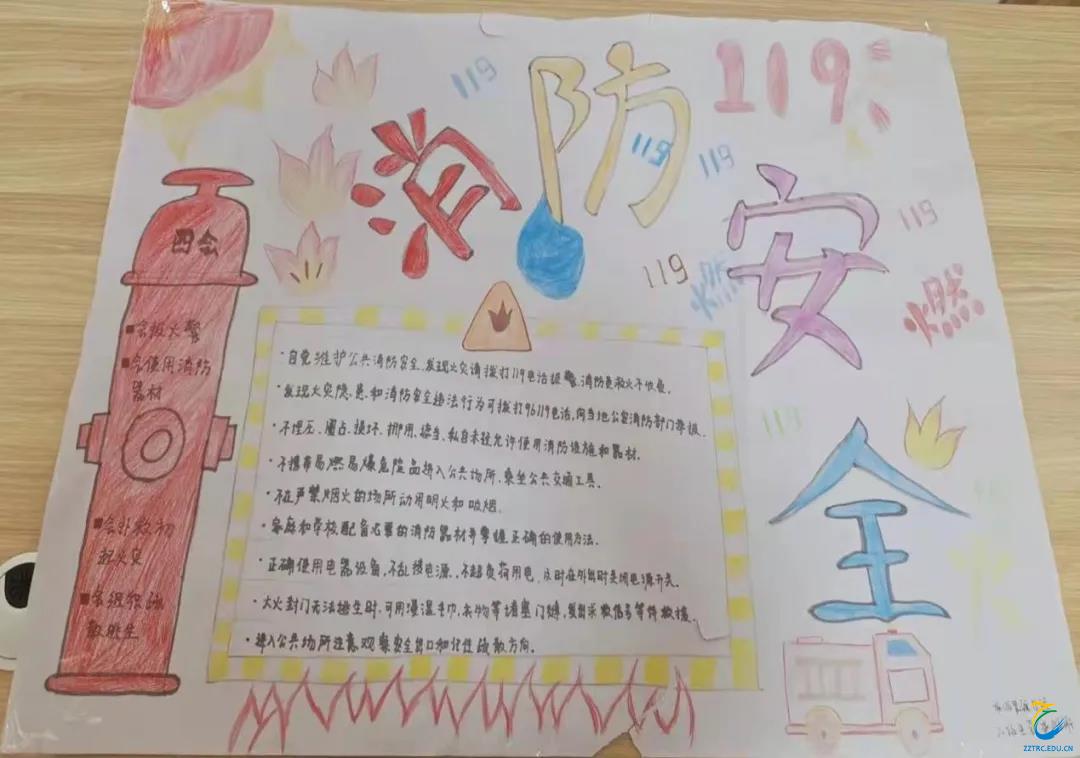 119
消防
119
119
119
安
119
119
燃
燃
119
全
四会
■会报火警
■会使用消防
器材
■会扑救初
起火灾
■会组织疏
散逃生
·自觉维护公共消防安全,发现火灾请拨打119电话报警,消防员救火不收费。
·发现火灾隐患和消防安全违法行为可拨打96119电话,向当地公安消防部门举报。
·不埋压、圈占、损坏、挪用、遮挡、私自未经允许使用消防设施和器材。
·不携带易燃易爆危险品进入公共场所、乘坐公共交通工具。
·不在严禁烟火的场所动用明火和吸烟。
·家庭和学校配备必要的消防器材并掌握正确的使用方法。
·正确使用电器设备,不乱接电源,不超负荷用电,及时在外出时关闭电源开关。
·大火封门无法逃生时,可用浸湿毛巾,衣物等堵塞门缝,发出求救信号等待救援。
·进入公共场所注意观察安全出口和记住疏散方向。
119
ZZTRC.EDU.CN